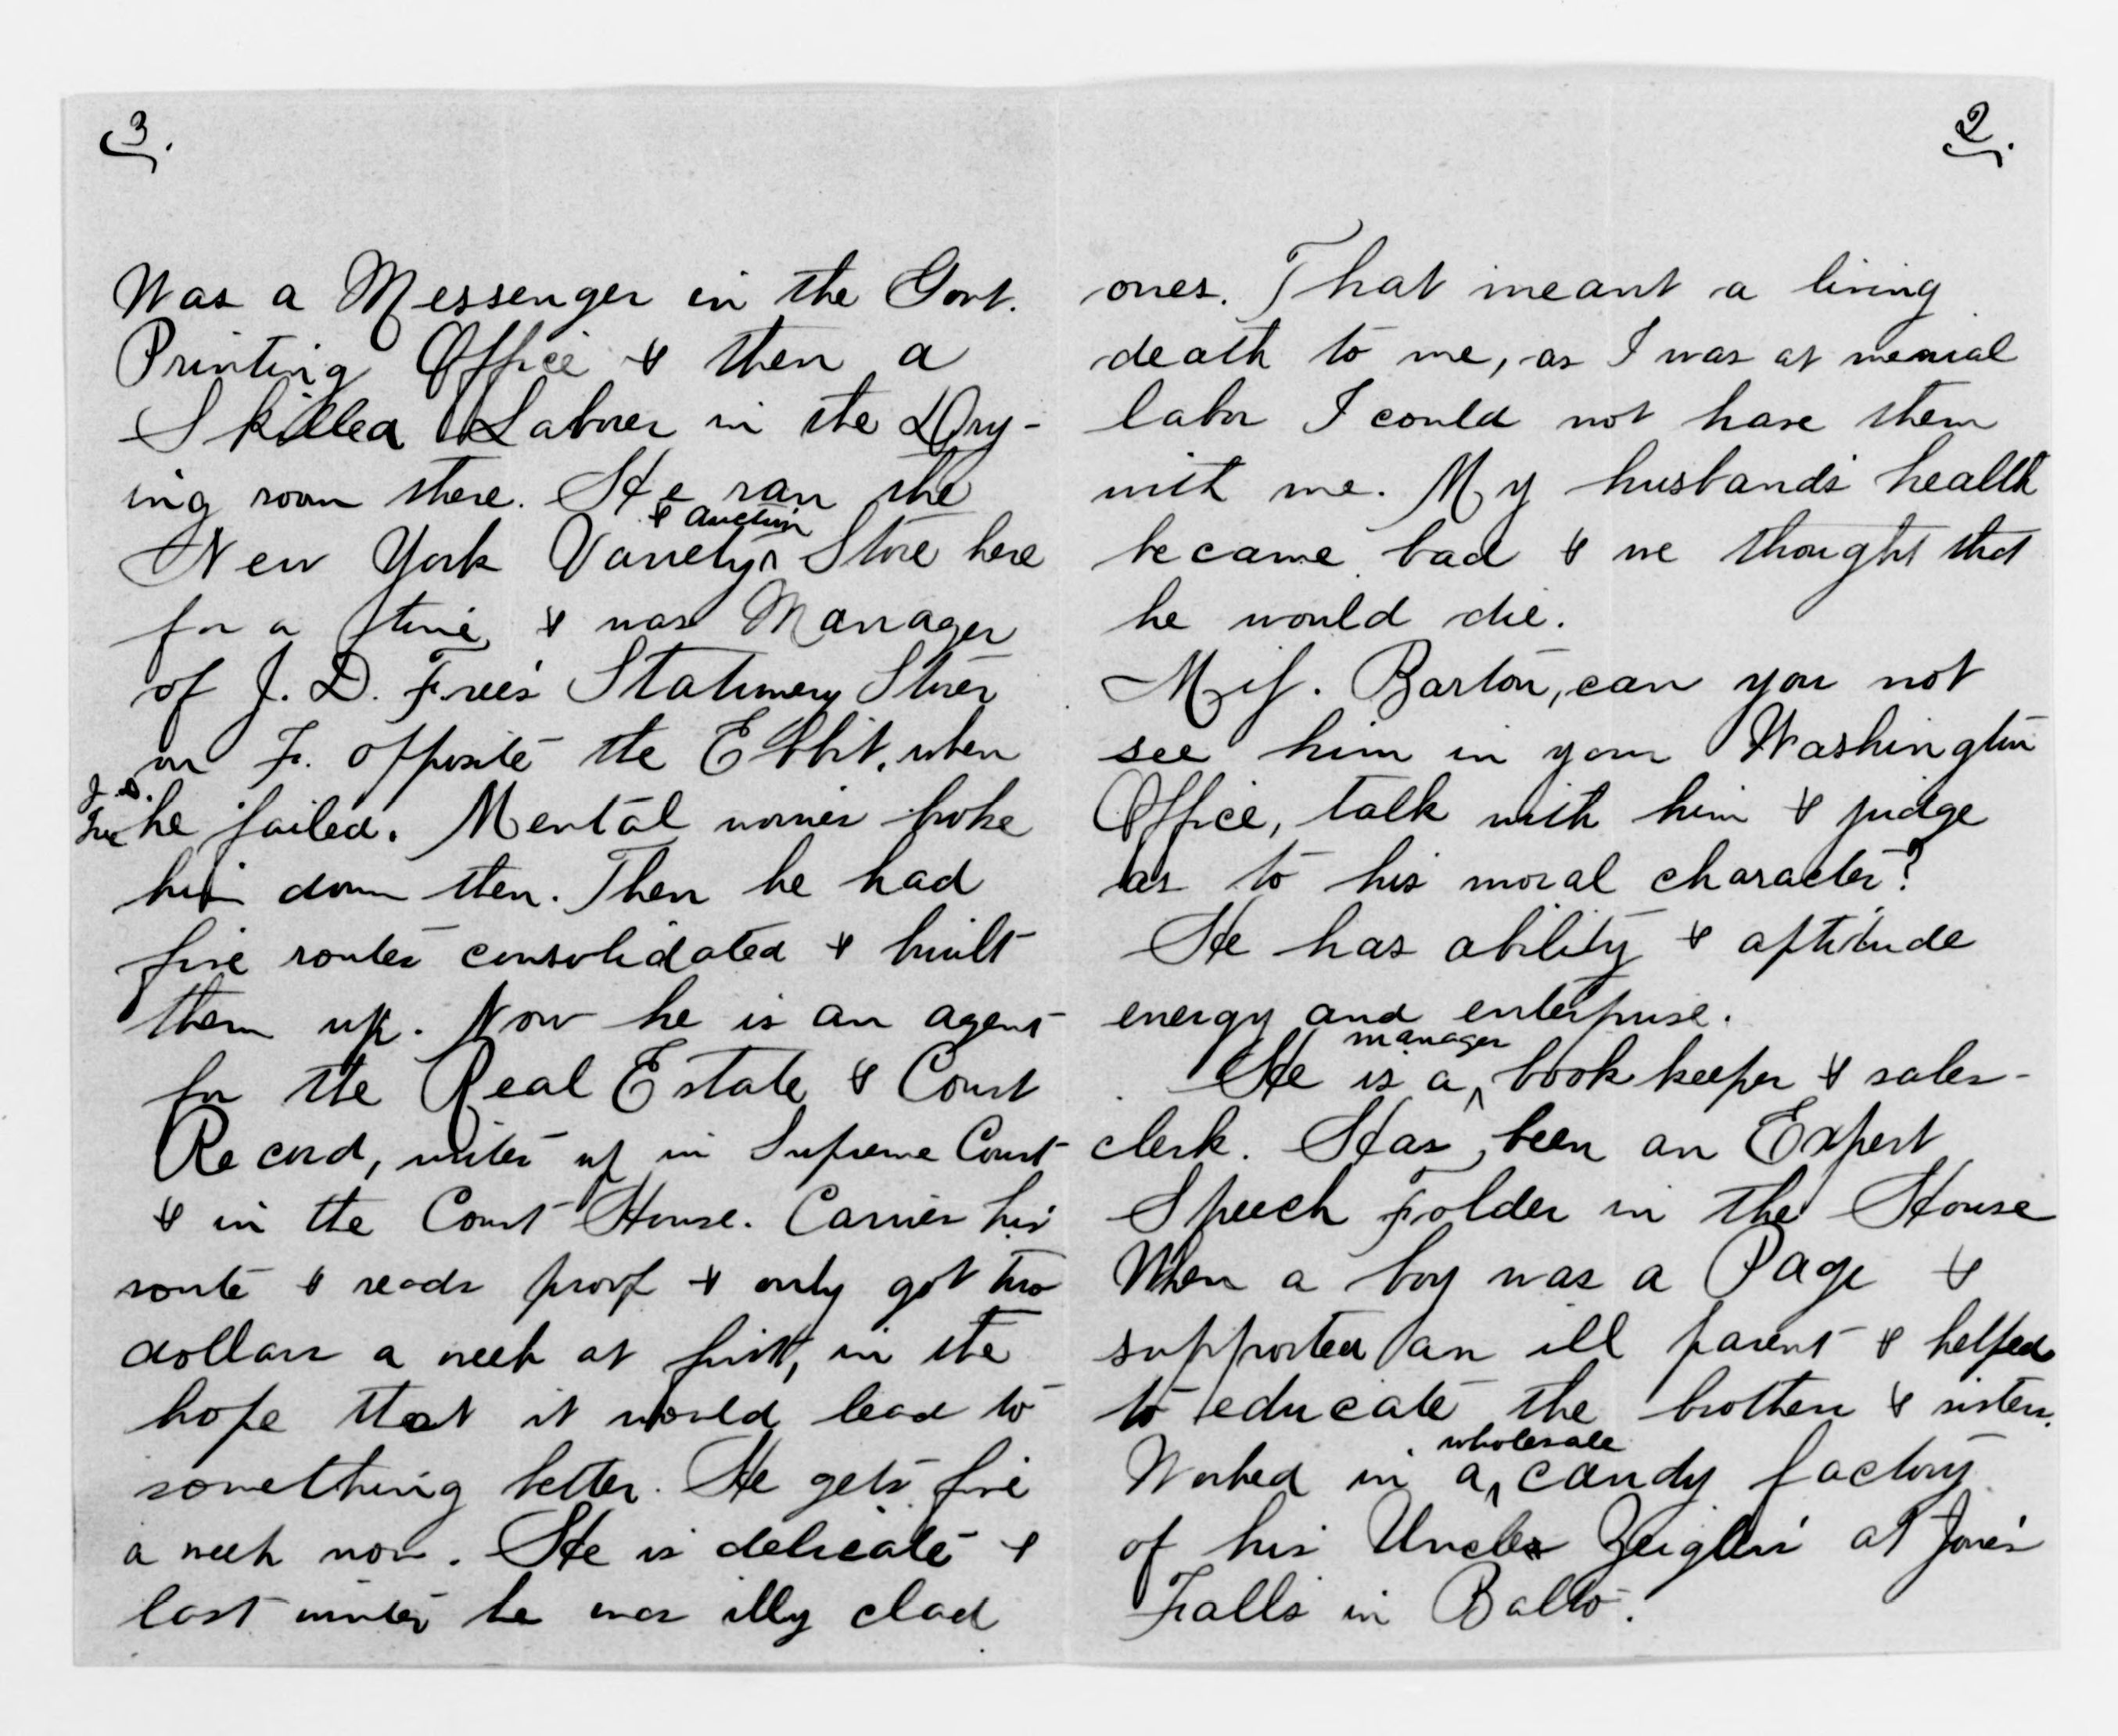 2.
ones. That meant a living
death to me, as I was at menial
labor I could not have them
with me. My husband's health
became bad & we thought that
he would die.
Miss. Barton, can you not
see him in your Washington
Office, talk with him & judge
as to his moral character?
He has ability & aptitude
energy and enterprise.
manager
He is a ^ book keeper & sales-
clerk. Has, been an Expert
Speech Folder in the House
When a boy was a Page &
supported an ill parent & helped
to educate the brothers & sisters.
wholesale
Worked in a ^ candy factory
of his Uncles Zeigler's at Jones
Falls in Balto.
3.
Was a Messenger in the Govt.
Printing Office & then a
Skilled Laborer in the Dry-
ing room there. He ran the
& auction
New York Variety ^ Store here
for a time & was Manager
of J. D. Free's Stationery Stores
on F. opposite the Ebbit, when
J. D.
Free he failed. Mental worries broke
him down then. Then he had
five routes consolidated & built
them up. Now he is an agent
for the Real Estate & Court
Record, writes up in Supreme Court
& in the Court House. Carries his
route & reads proof & only got two
dollars a week at first, in the
hope that it would lead to
something better. He gets five
a week now. He is delicate &
last winter he was illy clad